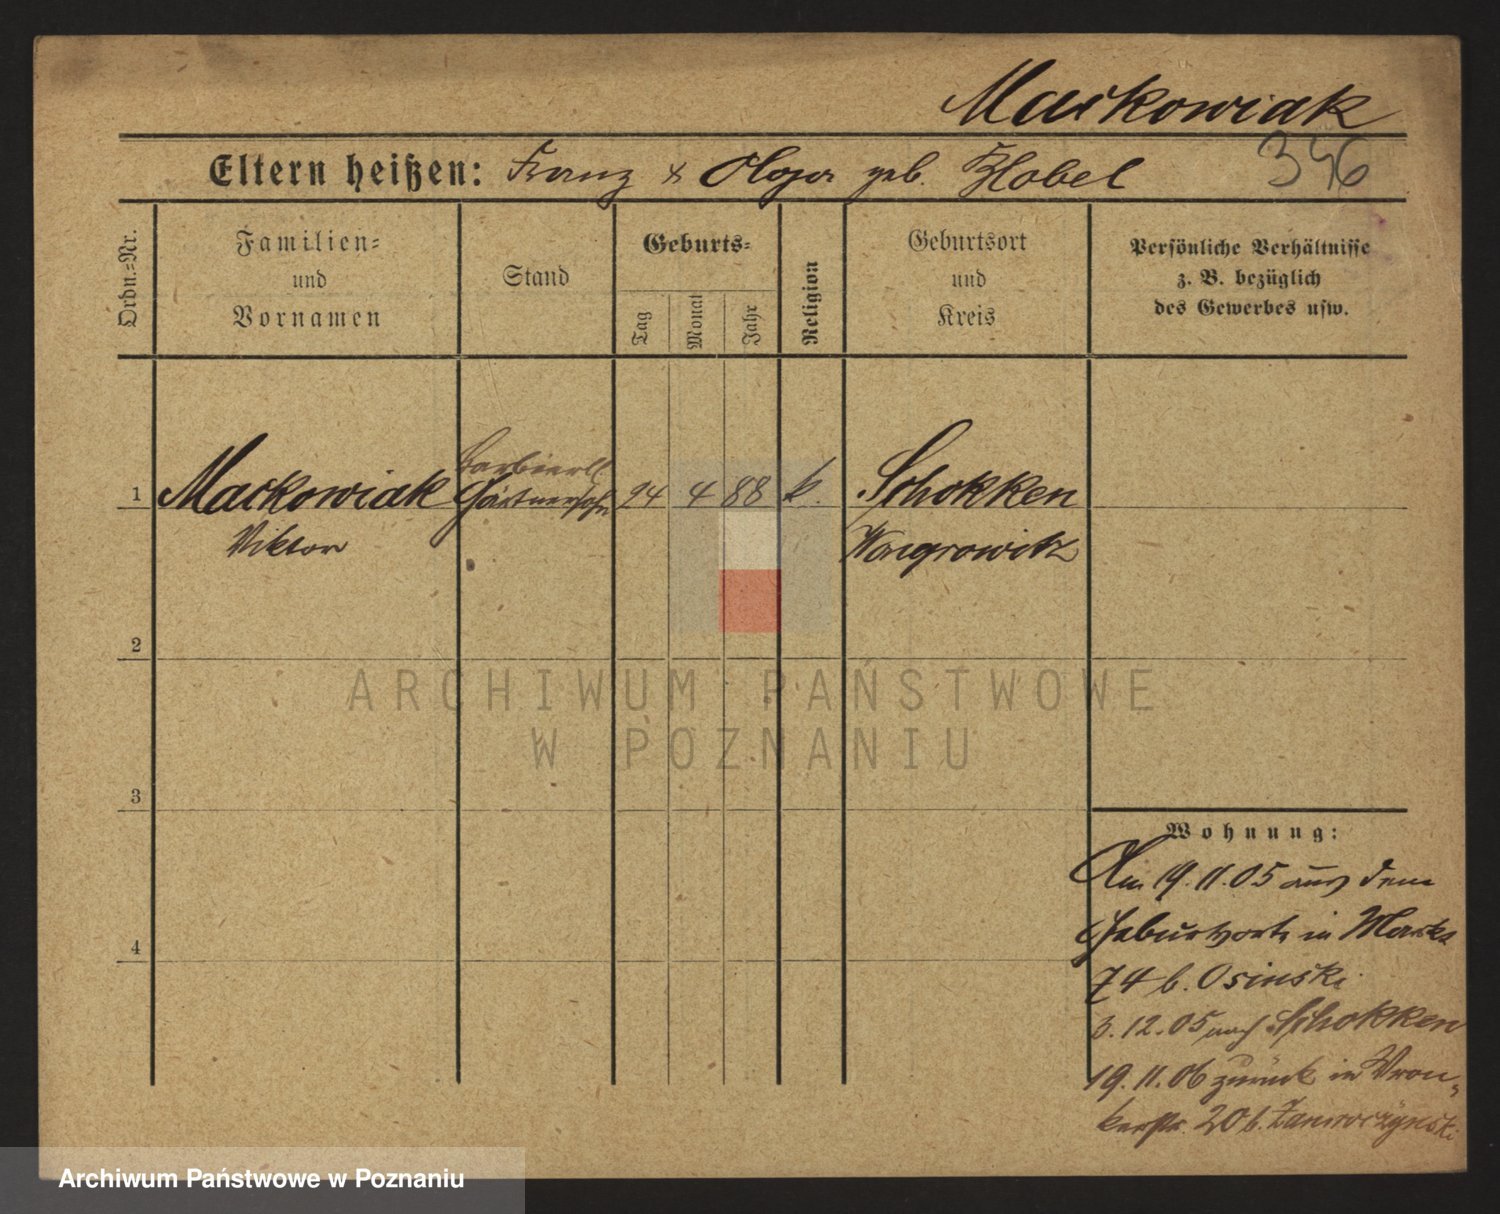 Markowiak
Eltern heißen: Franz & Olga geb. Zlobel
346
Ordn.=Nr.
Familien=
und
Vornamen
Stand
Geburts=
Tag
Monat
Jahr
Religion
Geburtsort
und
Kreis
Persönliche Verhältnisse
z. B. bezüglich
des Gewerbes usw.
Barbierl.
1 Markowiak Gärtnersohn 24 4 88 k. Schokken
Viktor Wongrowitz
2
3
4
Wohnung:
Am 19.11.05 aus dem
Geburtsorte in
74 b. Osinski
3.12.05 nach Schokken
19.11.06 zurück in Wron=
kerstr. 20 b.
ARCHIWUM PAŃSTWOWE
W POZNANIU
Archiwum Państwowe w Poznaniu